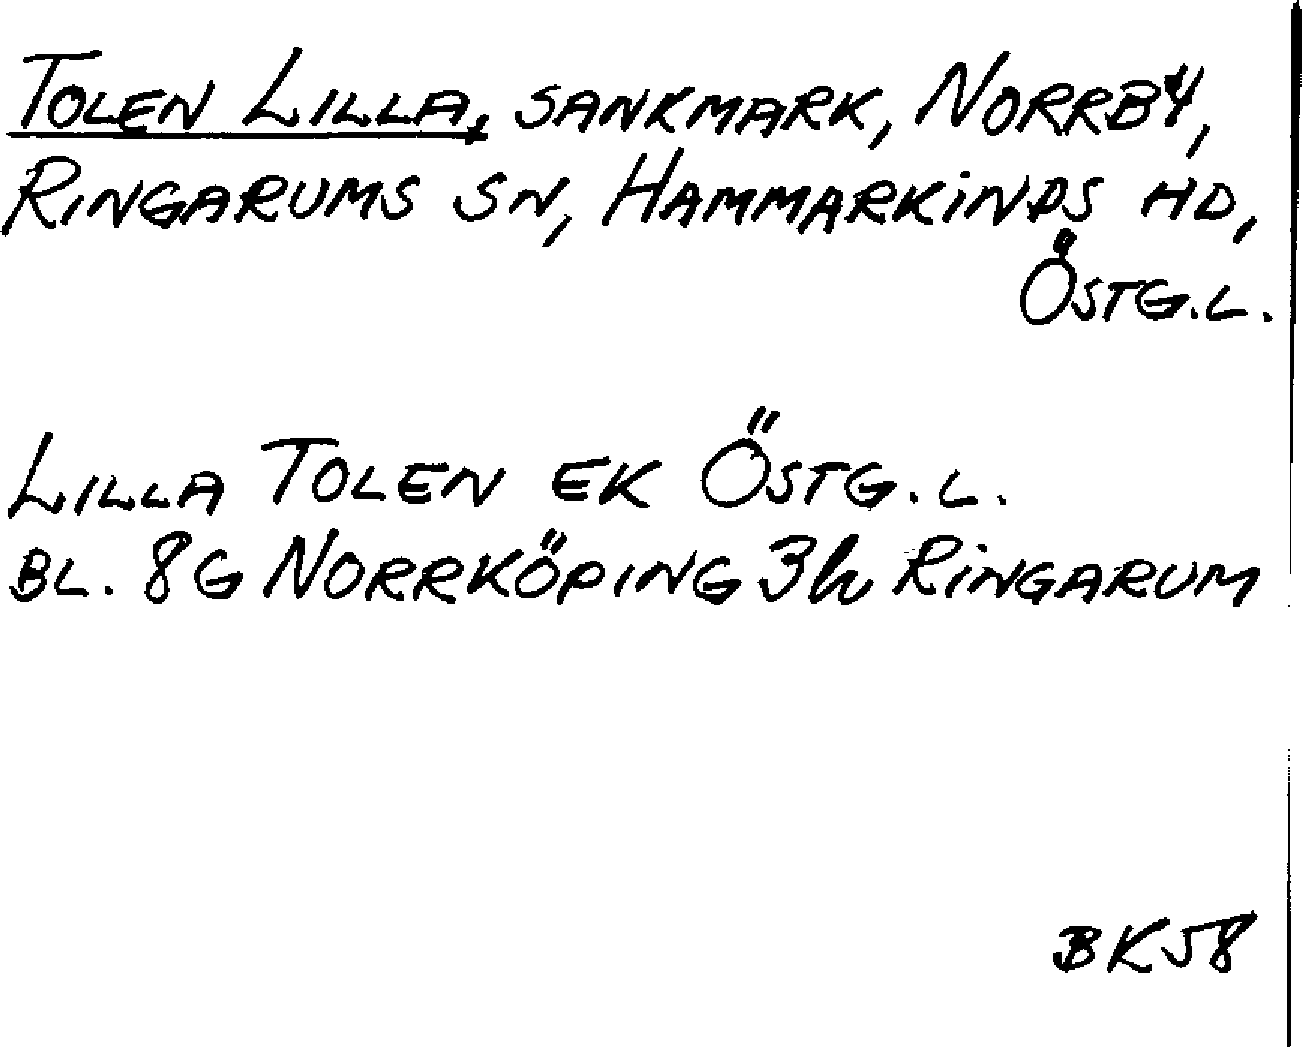 TOLEN LILLA, SANKMARK, NORRBY,
RINGARUMS SN, HAMMARKINDS HD,
ÖSTG.L.
LILLA TOLEN EK ÖSTG.L.
BL. 8G NORRKÖPING 3h RINGARUM
BK58